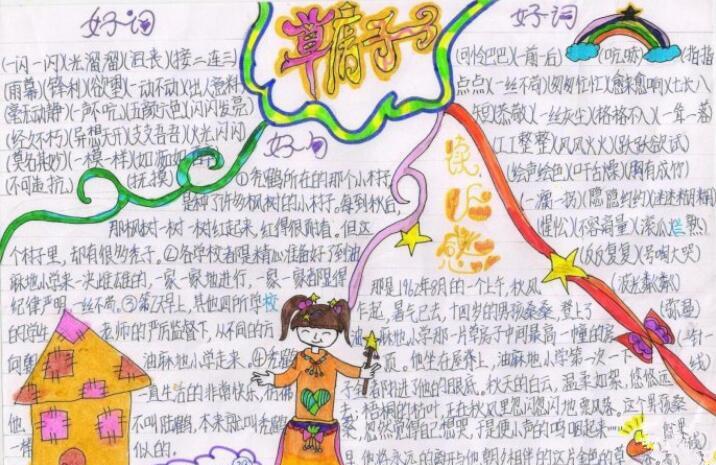 草房子
好词
(一闪一闪)(光溜溜)(沮丧)(接二连三)
(雨幕)(锋利)(欲望)(一动不动)(出人意料)
(毫无动静)(一声不吭)(五颜六色)(闪闪发亮)
(经久不朽)(异想天开)(支支吾吾)(火光闪闪)
(莫名其妙)(一模一样)
(不可抵抗)(抚摸)
好句
①秃鹤所在的那个小村子,
是种了许多枫树的小村子。每到秋后,
那枫树一树一树红起来,红得很耐看。但这
个村子里,却有很多秃子。②各学校都早精心准备好了到油
麻地小学来一决雌雄的,一家一家地进行,一家一家都显得
纪律严明,一丝不苟。③第二天早上,其他四所学校
的学生 老师的严厉监督下,从不同的方
向朝 油麻地小学走来。④秃鹤
一直生活的非常快乐,仿佛
他 不叫陆鹤,本来就叫秃鹤
一样 似的。
好词
(可怜巴巴)(一前一后)(吭哧)(指指
点点)(一丝不苟)(匆匆忙忙)(愈来愈响)(七长八
短)(恭敬)(一丝灰尘)(格格不入)(一耸一落)
(工工整整)(风风火火)(跃跃欲试)
(绘声绘色)(叶古燥)(胸有成竹)
(一瘸一拐)(隐隐约约)(迷迷糊糊)
(惺忪)(不容商量)(滚瓜烂熟)
(反反复复)(号啕大哭)
(波光粼粼)
(弥漫)
读后感
那是1962年8月的一个上午,秋风
乍起,暑气已去,十四岁的男孩桑桑,登上了
油麻地小学那一片草房子中间最高一幢的房
顶。他坐在屋脊上,油麻地小学第一次一下
子全都扑进了他的眼底。秋天的白云,温柔如絮,悠悠远
去,梧桐的枯叶,正在秋风里忽闪忽闪地飘落。这个男孩桑
桑,忽然觉得自己想哭,于是便小声的呜咽起来
他将永远的离开与他朝夕相伴的这片金色的草